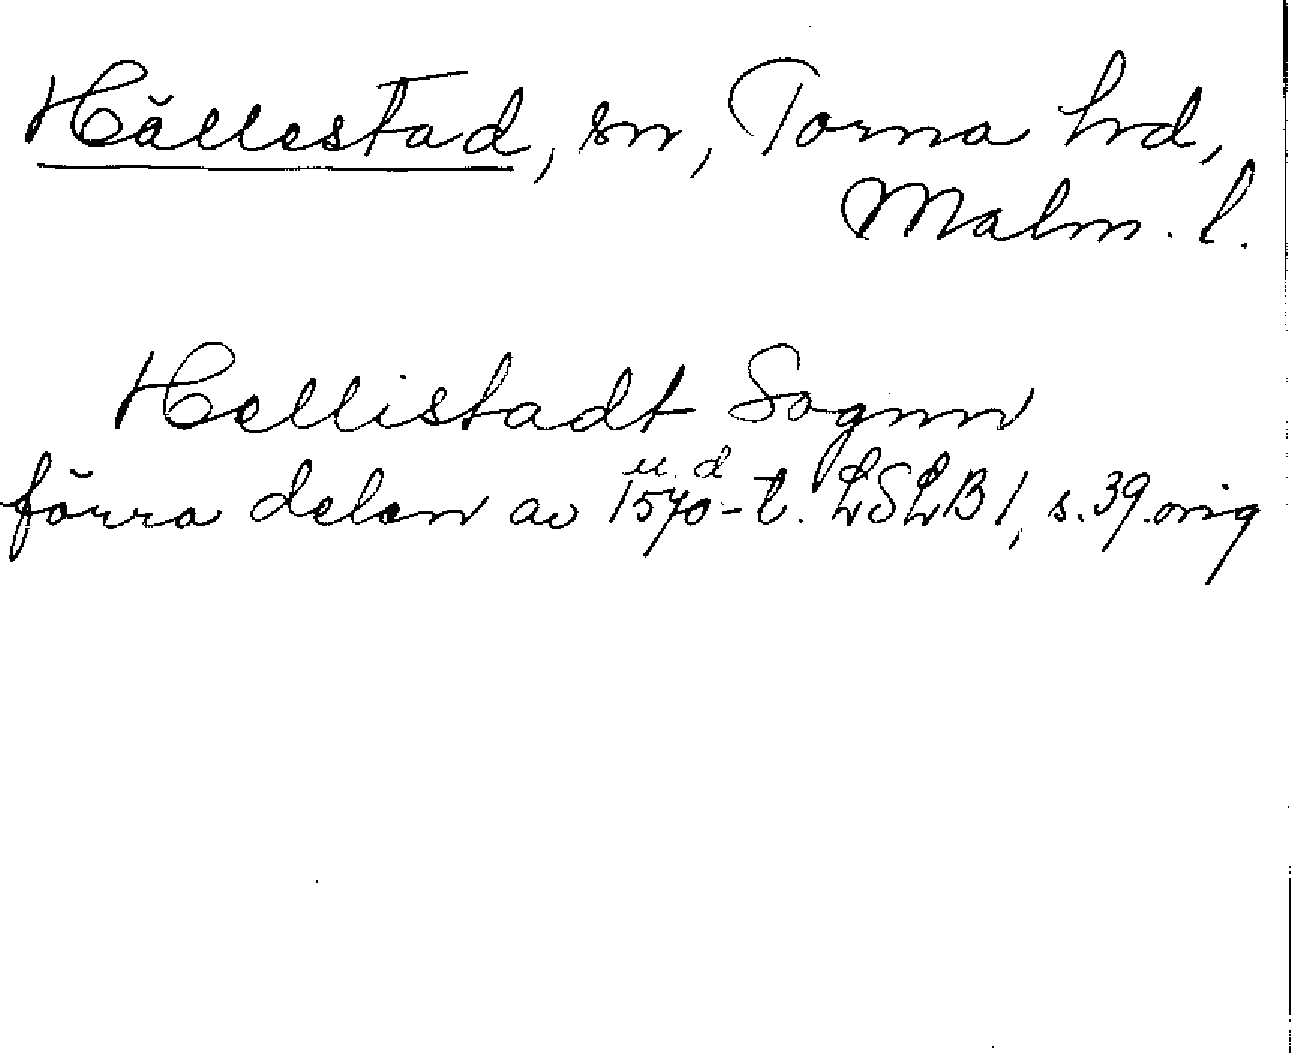 Hällestad, sn, Torna hd,
Malm. l.
Hellistadt Sognn
u. d
förra delen av 1570-t. LSLB 1, s. 39. orig